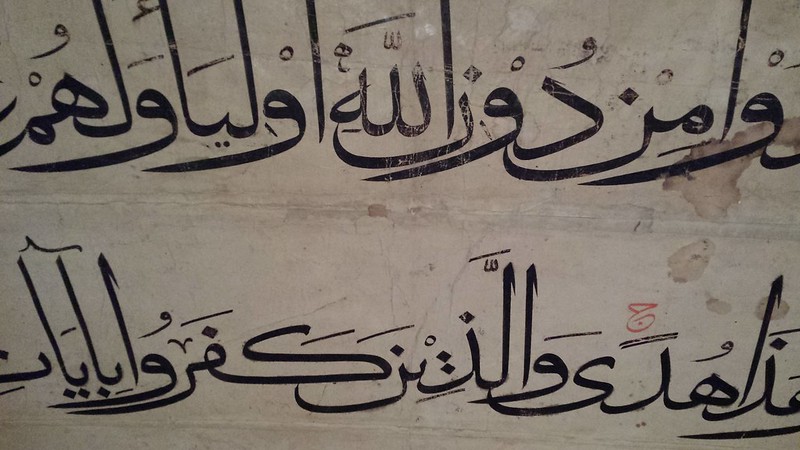 وْا مِنْ دُوْنِ اللَّهِ اَوْلِيَاءَ وَلَهُمْ
هَذَا هُدًى ج وَالَّذِيْنَ كَفَرُوا بِآيَاتِ